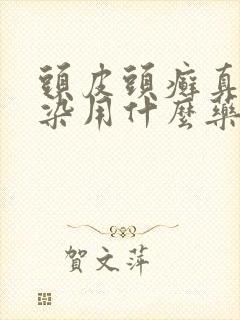 頭皮頭癬真
染用什麼藥
賀文萍